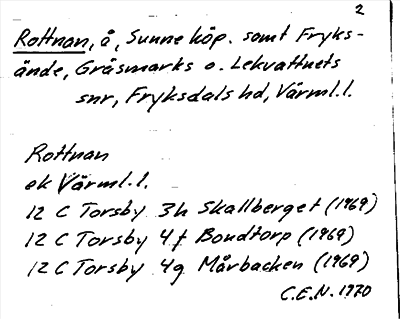 2
Rottnan, å, Sunne köp. samt Fryks-
ände, Gräsmarks o. Lekvattnets
snr, Fryksdals hd, Värml.l.
Rottnan
ek Värml.l.
12 C Torsby 3h Skallberget (1969)
12 C Torsby 4f Bondtorp (1969)
12 C Torsby 4g Mårbacken (1969)
C.E.N. 1970